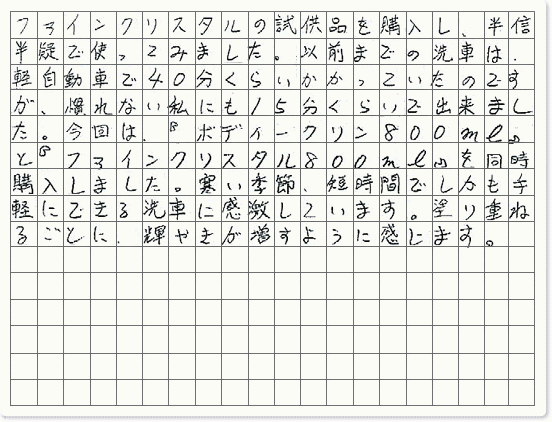 ファインクリスタルの試供品を購入し、半信
半疑で使ってみました。以前までの洗車は、
軽自動車で40分くらいかかっていたのです
が、慣れない私にも15分くらいで出来まし
た。今回は、『ボディークリン800ml』
と『ファインクリスタル800ml』を同時
購入しました。寒い季節、短時間でしかも手
軽にできる洗車に感激しています。塗り重ね
るごとに、輝やきが増すように感じます。